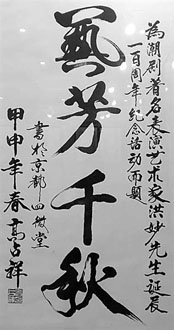 為潮剧著名表演艺术家洪妙先生诞辰
一百周年纪念活动而题
藝芳千秋
書於京都四微堂
甲申年春高占祥